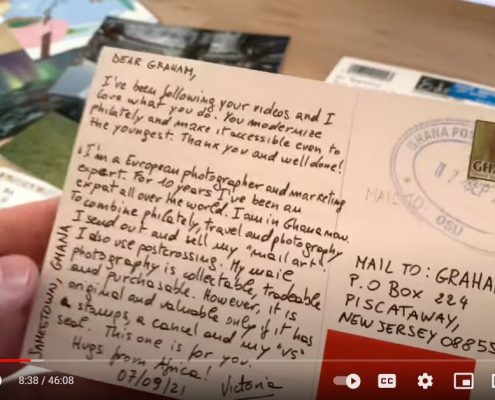 DEAR GRAHAM,
I've been following your videos and I
love what you do. You modernize
philately and make it accessible even to
the youngest. Thank you and well done!
I'm a European photographer and marketing
expert. For 10 years I've been an
expat all over the world. I am in Ghana now.
To combine philately, travel and photography
I send out and sell my "mail art".
I also use postcrossing. My
photography is collectable, tradeable
and purchasable. However, it is
original and valuable only if it has
a stamps, a cancel and my "VS"
seal. This one is for you.
Hugs from Africa!
07/09/21 Victoria
JAMESTOWN, GHANA
GHANA POS
17 SEP
OSU
GHAN
MAIL TO:
MAIL TO: GRAHA
P.O BOX 224
PISCATAWAY,
NEW JERSEY 08855
8:38 / 46:08
CC